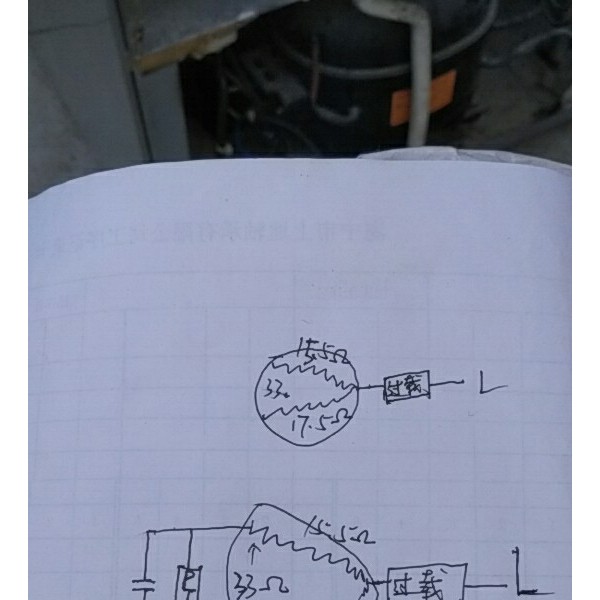 15.5Ω
33Ω
过载 L
17.5Ω
15.5Ω
33Ω
过载 L